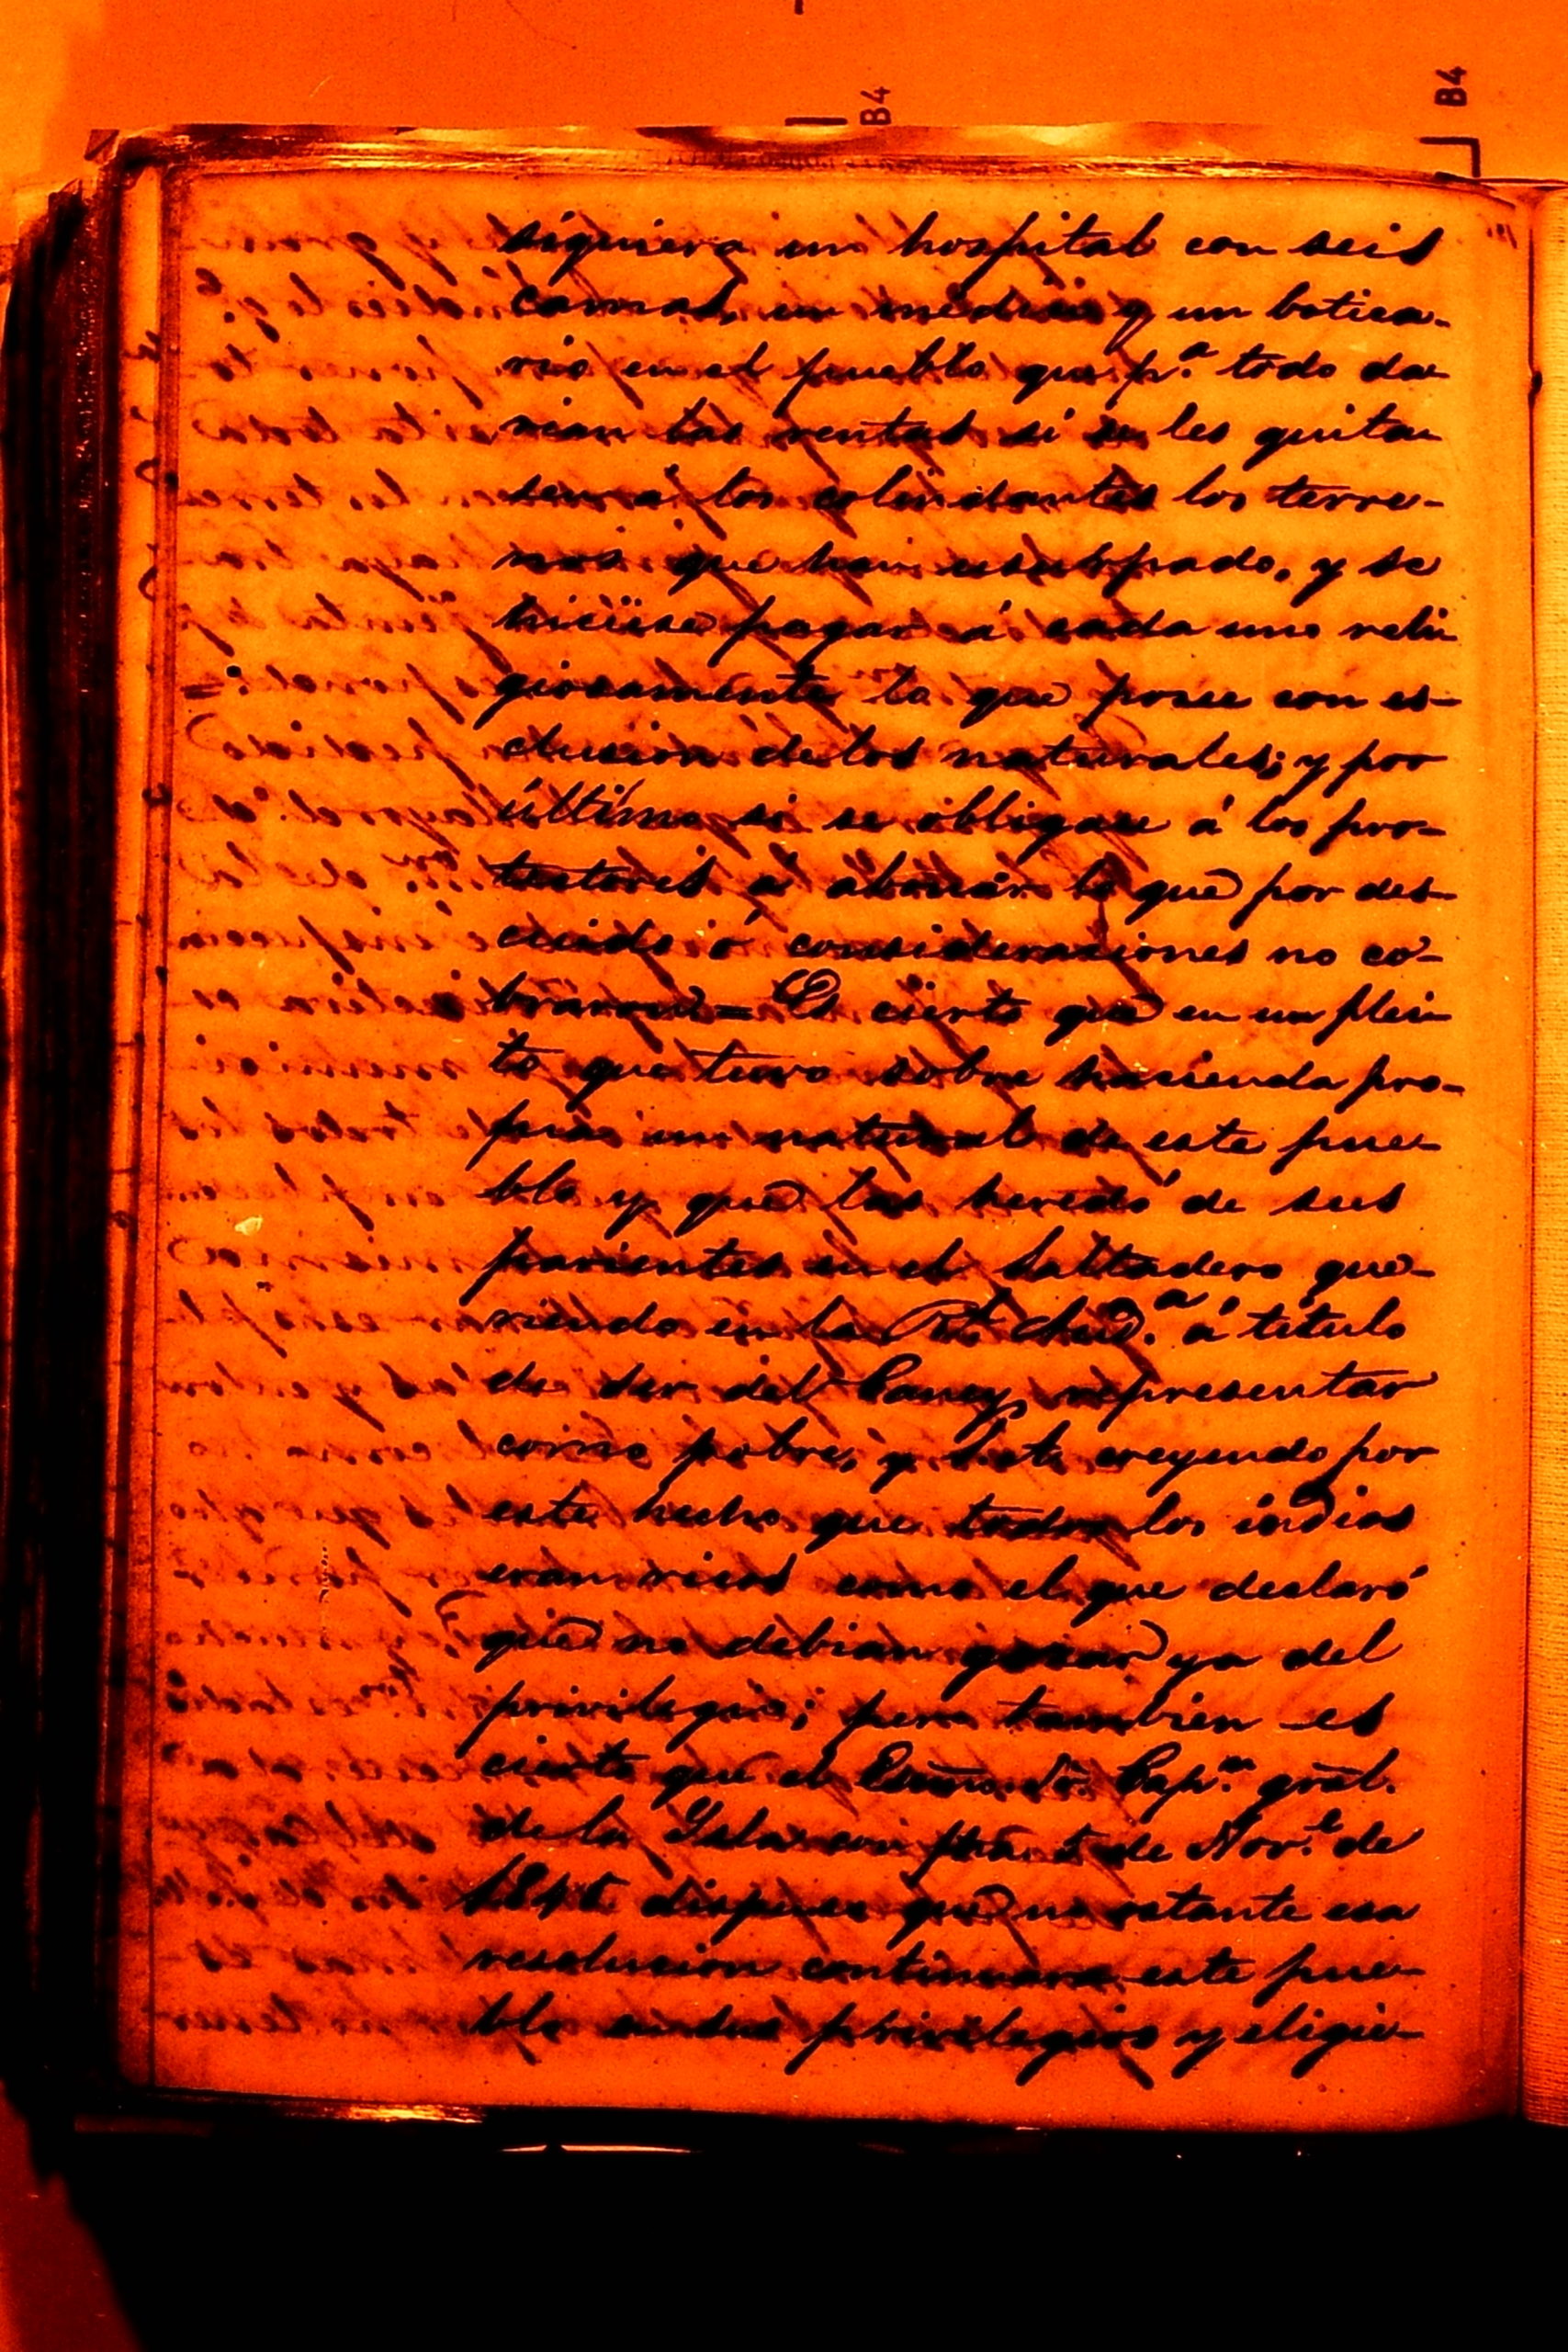 B4
B4
siquiera un hospital con seis
camas, un médico y un botica-
rio en el pueblo que p.ª todo da-
rian las rentas si se les quita-
sen á los colindantes los terre-
nos que han usurpado, y se
hiciese pagar á cada uno reli-
giosamente lo que posee con es-
clusion de los naturales; y por
último si se obligase á los pro-
tectores á abonar lo que por des-
cuido ó consideraciones no co-
braron = Es cierto que en un plei-
to que tuvo sobre hacienda pro-
pia un natural de este pue-
blo y que las heredó de sus
parientes en el Saltadero que-
riendo en la Rl. Aud.ª á título
de ser del Caney representar
como pobre, y esta creyendo por
este hecho que todos los indios
eran ricos como el que declaró
que no debian gozar ya del
privilegio; pero tambien es
cierto que el Exmo. Sr. Cap.n gral.
de la Ysla con fha. 5 de Nov.e de
dispuso que no ostante esa
resolucion continuara este pue-
blo en sus privilegios y eligie-